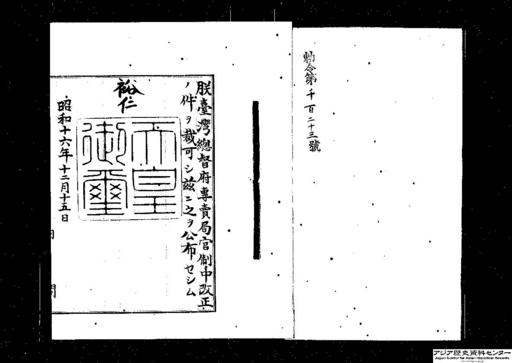 勅令第千百二十三號
朕臺灣總督府專賣局官制中改正
ノ件ヲ裁可シ茲ニ之ヲ公布セシム
裕仁
天皇
御璽
昭和十六年十二月十五日
アジア歴史資料センター
Japan Center for Asian Historical Records